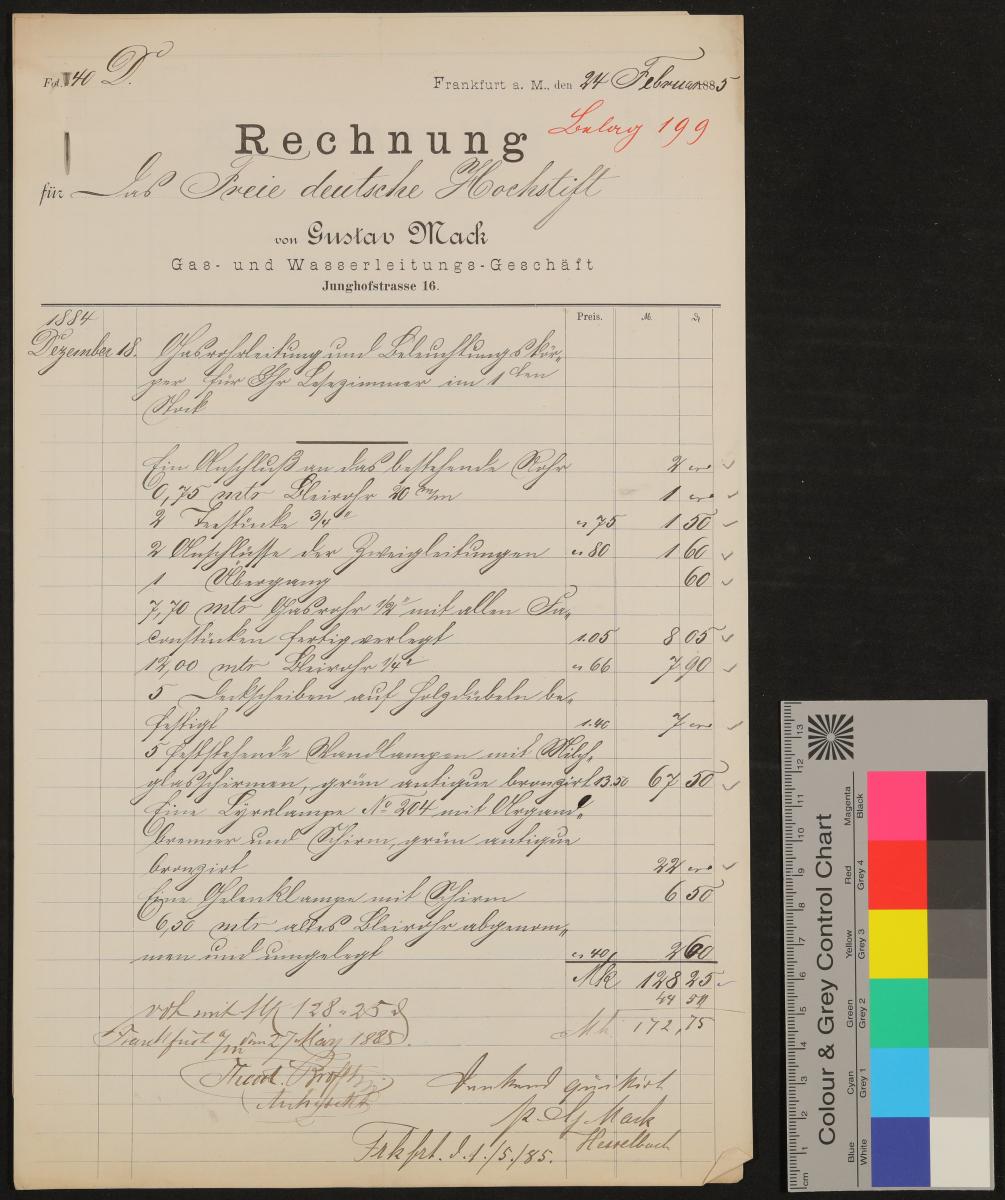 Fol. 40 D.
Frankfurt a. M., den 24 Februar 1885
Belag 199
Rechnung
für Das Freie deutsche Hochstift
von Gustav Mack
Gas- und Wasserleitungs-Geschäft
Junghofstrasse 16.
Preis. M. ₰
1884
Dezember 18. Gasrohrleitung und Beleuchtungskör-
per für Ihr Lesezimmer im 1ten
Stock
Ein Anschluß an das bestehende Rohr 2
0,75 mtr Bleirohr 20 m/m 1
2 Teestücke 3/4" 75 1 50
2 Anschlüsse der Zweigleitungen 80 1 60
1 Übergang 60
7,70 mtr Gasrohr 1/2" mit allen Fa-
constücken fertig verlegt 1.05 8 05
12,00 mtr Bleirohr 1/4" 66 7 90
5 Deckscheiben auf Holzdübeln be-
festigt 1.40 7
5 feststehende Wandlampen mit Milch-
glasschirmen, grün antique bronzirt 13.50 67 50
Eine Lyralampe No 204 mit Argand-
brenner und Schirm, grün antique
bronzirt 22
Eine Gelenklampe mit Schirm 6 50
6,50 mtr altes Bleirohr abgenom-
men und umgelegt 40 2 60
Mk 128 25
44 50
Mk 172,75
mit M 128.25 ₰
Frankfurt a/m den 27 März 1885.
Theod.
Architekt
Dankend quittirt
p. G. Mack
Hesselbach
Frkfrt. d. 1./5./85.
Colour & Grey Control Chart
Blue Cyan Green Yellow Red Magenta
White Grey 1 Grey 2 Grey 3 Grey 4 Black
cm 1 2 3 4 5 6 7 8 9 10 11 12 13